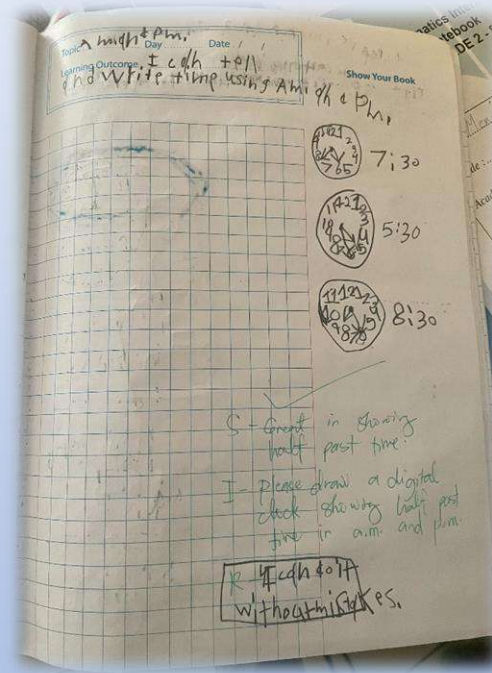 Topic A m and P m. Day Date / /
Learning Outcome I can tell
and write time using Am and Pm.
Show Your Book
7:30
5:30
8:30
S - Correct in showing
half past time.
I - Please draw a digital
clock showing half past
time in a.m. and p.m.
R - I can do it
without mistakes.
tebook
DE 2 -